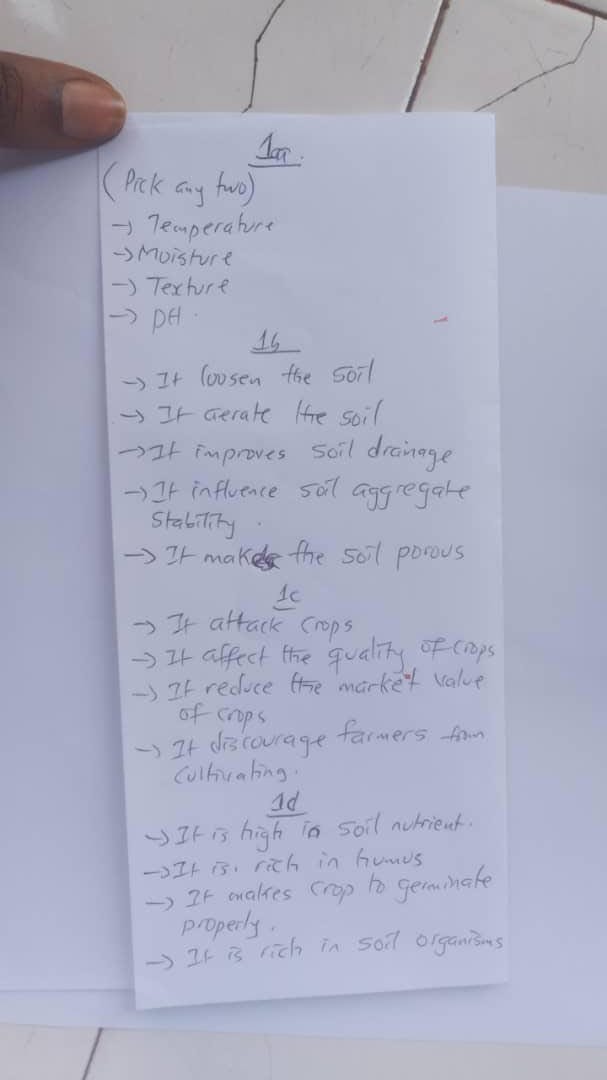 1aa.
(Pick any two)
→ Temperature
→ Moisture
→ Texture
→ pH.
1b
→ It loosen the soil
→ It aerate the soil
→ It improves soil drainage
→ It influence soil aggregate
stability.
→ It makes the soil porous
1c
→ It attack crops
→ It affect the quality of crops
→ It reduce the market value
of crops
→ It discourage farmers from
cultivating.
1d
→ It is high in soil nutrient.
→ It is rich in humus
→ It makes crop to germinate
properly.
→ It is rich in soil organisms